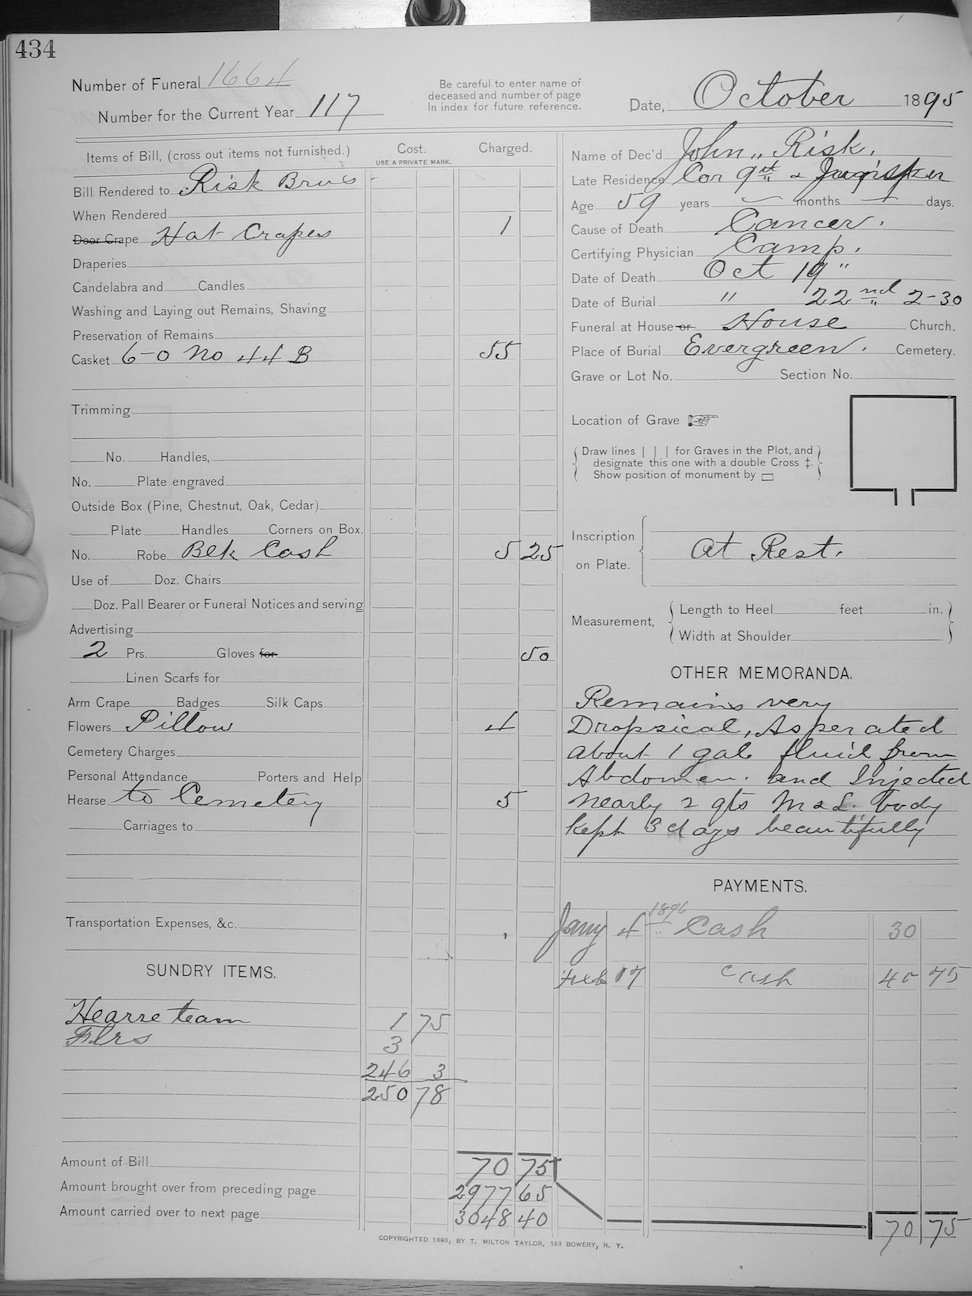 434
Number of Funeral 1664
Number for the Current Year 117
Be careful to enter name of
deceased and number of page
in index for future reference.
Date, October 1895
Items of Bill, (cross out items not furnished.)
Cost.
USE A PRIVATE MARK.
Charged.
Bill Rendered to Risk Bros
When Rendered
Door Crape Hat Crapes 1
Draperies
Candelabra and Candles
Washing and Laying out Remains, Shaving
Preservation of Remains
Casket 6-0 No 44 B 55
Trimming
No. Handles,
No. Plate engraved
Outside Box (Pine, Chestnut, Oak, Cedar)
Plate Handles Corners on Box
No. Robe Blk Cash 5 25
Use of Doz. Chairs
Doz. Pall Bearer or Funeral Notices and serving
Advertising
2 Prs. Gloves for 50
Linen Scarfs for
Arm Crape Badges Silk Caps
Flowers Pillow 4
Cemetery Charges
Personal Attendance Porters and Help
Hearse to Cemetery 5
Carriages to
Transportation Expenses, &c.
SUNDRY ITEMS.
Hearse team 1 75
Flrs 3
246 3
250 78
Amount of Bill 70 75
Amount brought over from preceding page 2977 65
Amount carried over to next page 3048 40
Name of Dec'd John Risk.
Late Residence Cor 9th &
Age 59 years months days.
Cause of Death Cancer.
Certifying Physician Camp.
Date of Death Oct 19"
Date of Burial " 22nd 2-30
Funeral at House or House Church.
Place of Burial Evergreen. Cemetery.
Grave or Lot No. Section No.
Location of Grave
Draw lines | | | for Graves in the Plot, and
designate this one with a double Cross ‡.
Show position of monument by
Inscription
on Plate.
At Rest.
Measurement,
Length to Heel feet in.
Width at Shoulder
OTHER MEMORANDA.
Remains very
Dropsical, Asperated
about 1 gal fluid from
Abdomen. and Injected
nearly 2 qts M & L. body
kept 3 days beautifully
PAYMENTS.
1896
Jany 4 Cash 30
Feb 17 Cash 40 75
70 75
COPYRIGHTED 1890, BY T. MILTON TAYLOR, 163 BOWERY, N. Y.